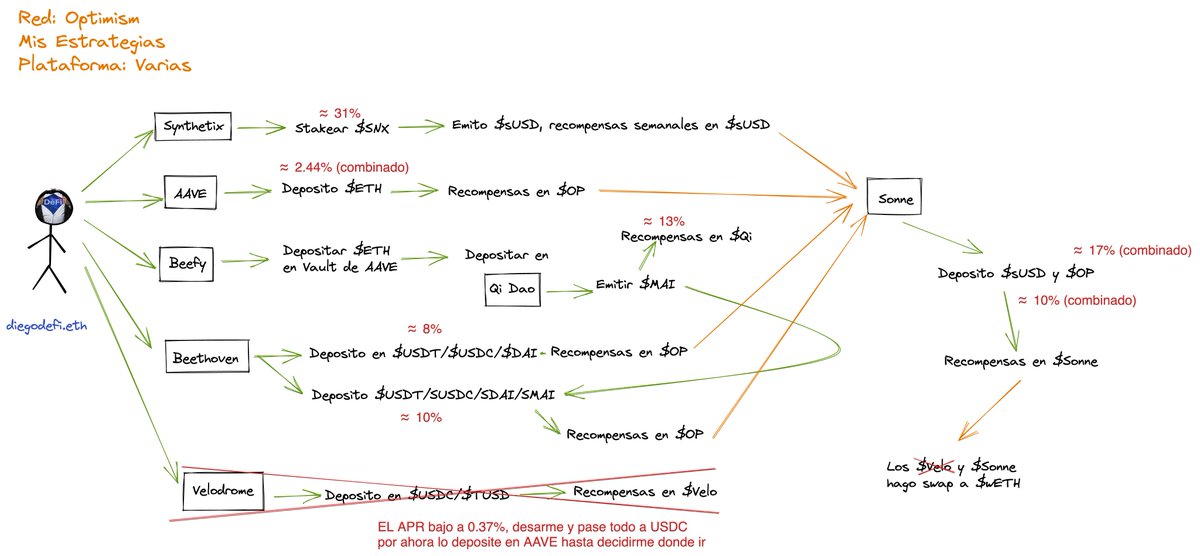 Red: Optimism
Mis Estrategias
Plataforma: Varias
Synthetix
≈ 31%
Stakear $SNX
Emito $sUSD, recompensas semanales en $sUSD
AAVE
≈ 2.44% (combinado)
Deposito $ETH
Recompensas en $OP
Sonne
DeFi
diegodefi.eth
Beefy
Depositar $ETH
en Vault de AAVE
Depositar en
Qi Dao
Emitir $MAI
≈ 13%
Recompensas en $Qi
≈ 17% (combinado)
Deposito $sUSD y $OP
≈ 10% (combinado)
Recompensas en $Sonne
Beethoven
≈ 8%
Deposito en $USDT/$USDC/$DAI - Recompensas en $OP
Deposito $USDT/SUSDC/SDAI/SMAI
≈ 10%
Recompensas en $OP
Los $Velo y $Sonne
hago swap a $wETH
Velodrome
Deposito en $USDC/$TUSD
Recompensas en $Velo
EL APR bajo a 0.37%, desarme y pase todo a USDC
por ahora lo deposite en AAVE hasta decidirme donde ir